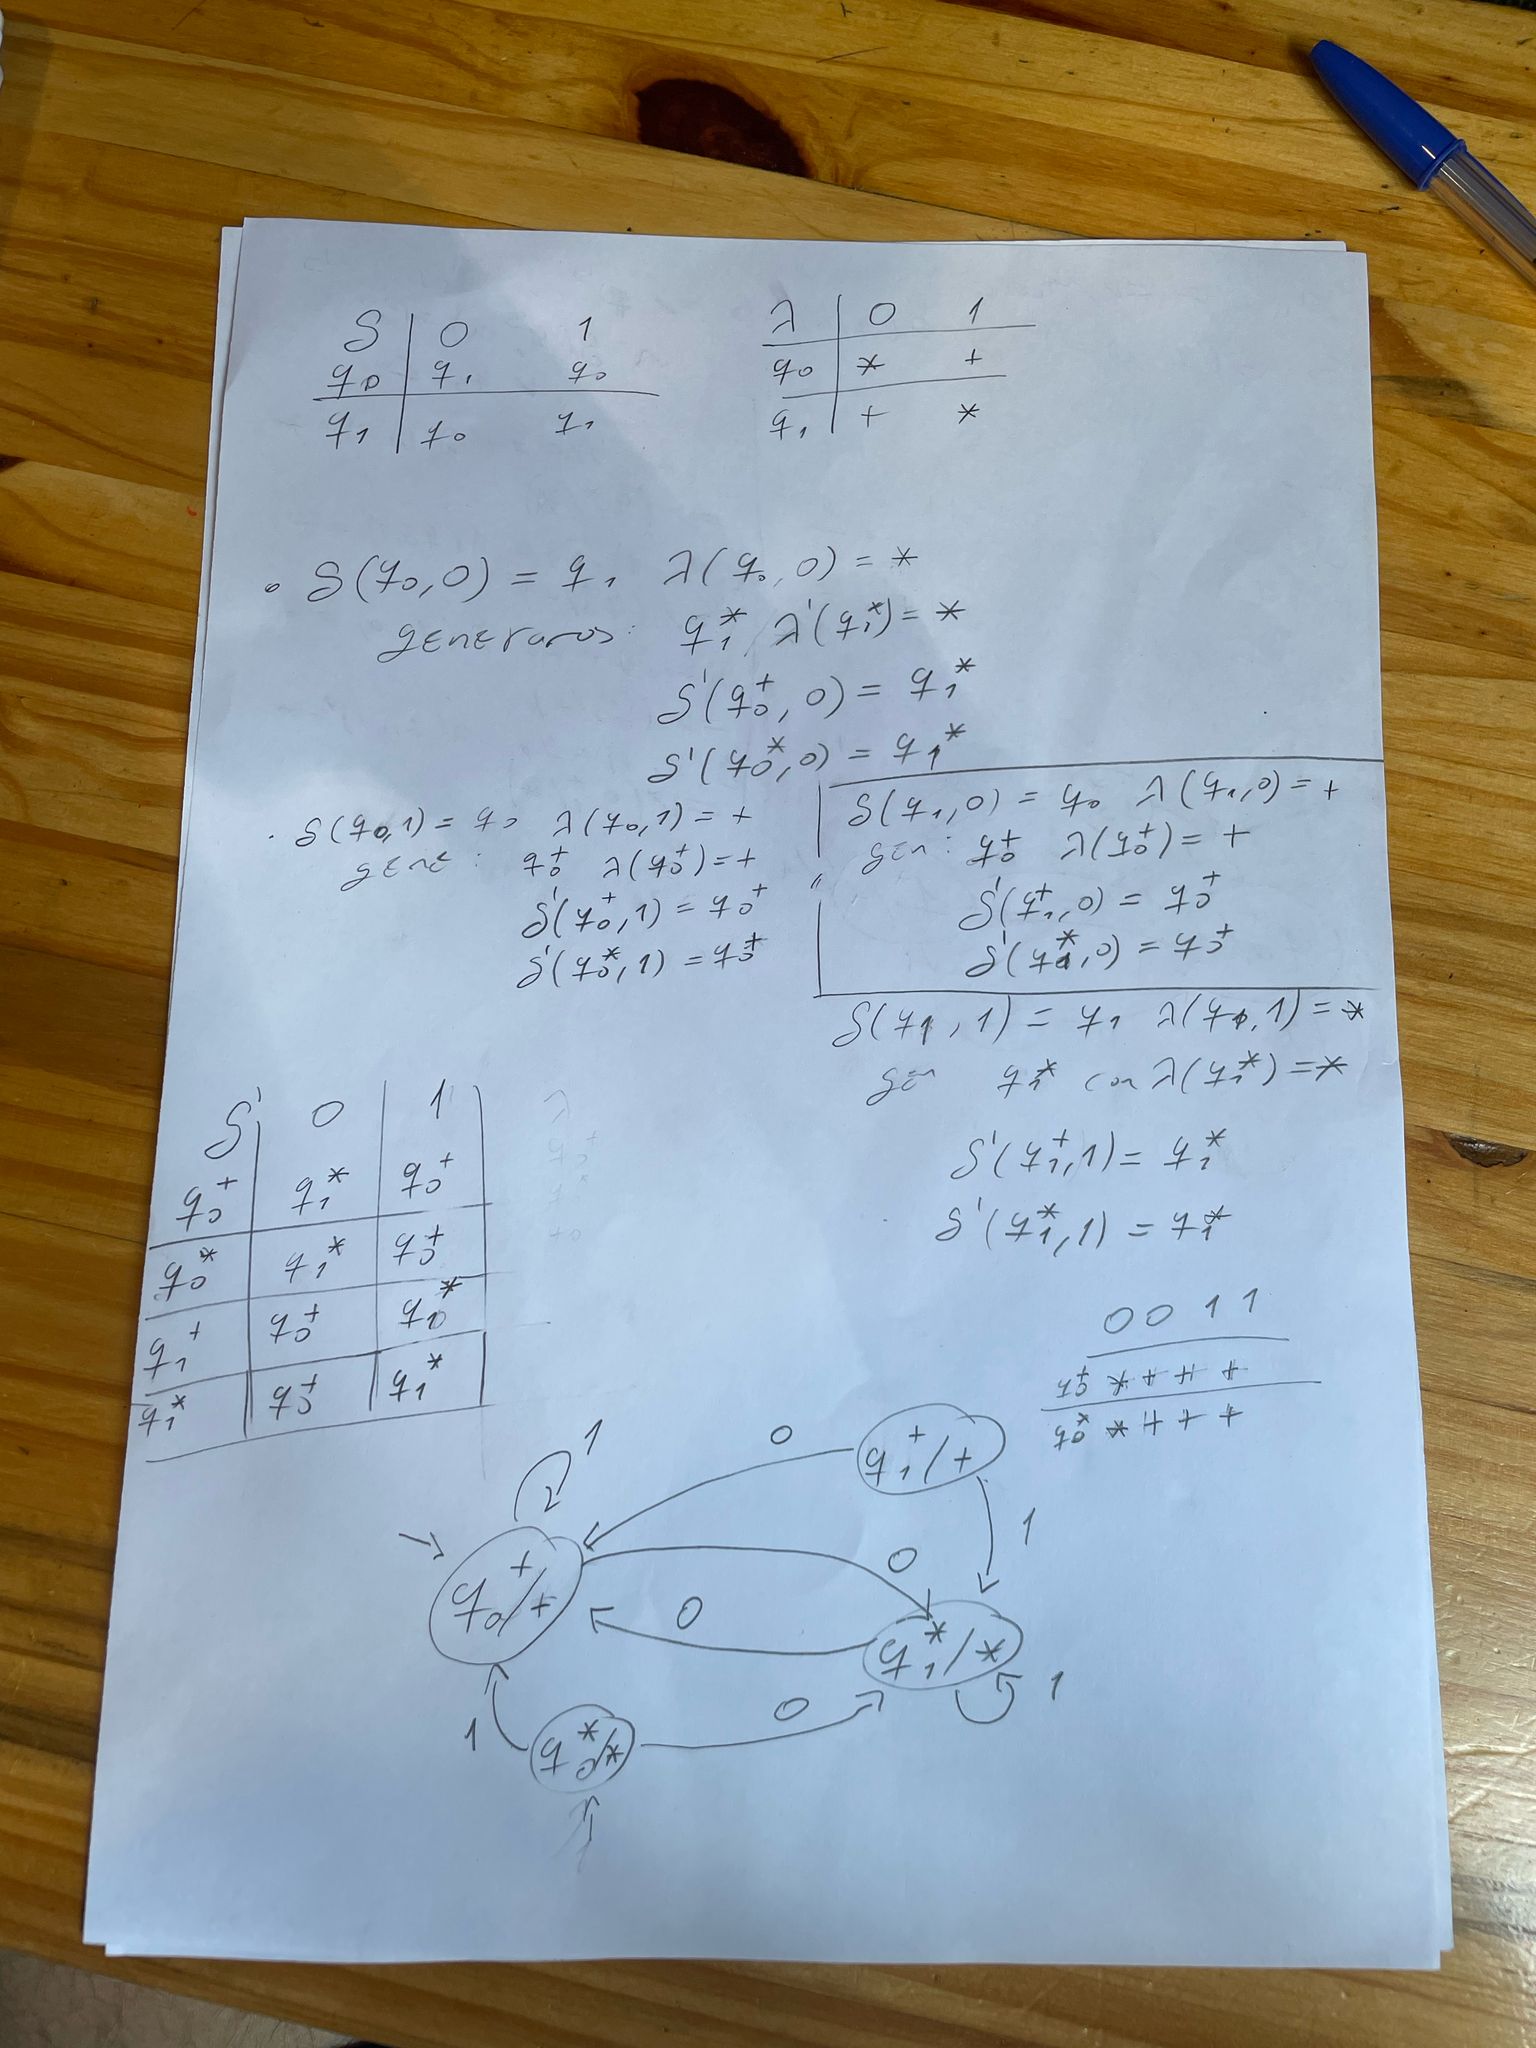 δ 0 1
q₀ q₁ q₀
q₁ q₀ q₁
λ 0 1
q₀ * +
q₁ + *
• δ(q₀,0) = q₁ λ(q₀,0) = *
generamos: q₁* λ'(q₁*) = *
δ'(q₀⁺,0) = q₁*
δ'(q₀*,0) = q₁*
· δ(q₀,1) = q₀ λ(q₀,1) = +
gene: q₀⁺ λ(q₀⁺) = +
δ'(q₀⁺,1) = q₀⁺
δ'(q₀*,1) = q₀⁺
δ(q₁,0) = q₀ λ(q₁,0) = +
gen: q₀⁺ λ(q₀⁺) = +
δ'(q₁⁺,0) = q₀⁺
δ'(q₁*,0) = q₀⁺
δ(q₁,1) = q₁ λ(q₁,1) = *
gen q₁* con λ(q₁*) = *
δ'(q₁⁺,1) = q₁*
δ'(q₁*,1) = q₁*
δ' 0 1
q₀⁺ q₁* q₀⁺
q₀* q₁* q₀⁺
q₁⁺ q₀⁺ q₁*
q₁* q₀⁺ q₁*
0 0 1 1
q₀⁺ * + + +
q₀* * + + +
1
0
q₁⁺/+
1
q₀⁺/+
0
0
q₁*/*
1
1
q₀*/*
0